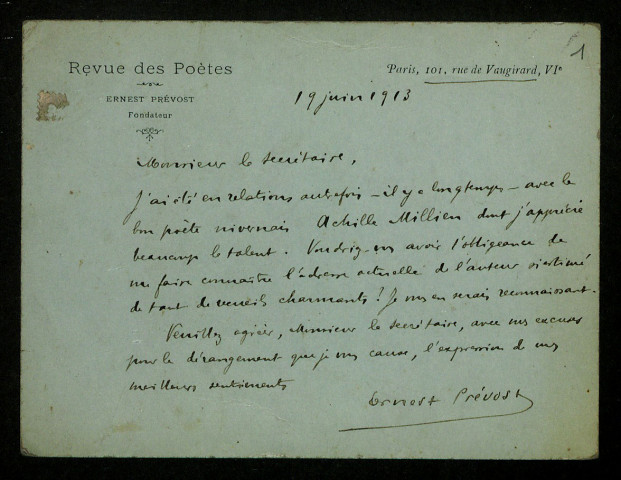 1
Revue des Poètes
Paris, 101, rue de Vaugirard, VIe
ERNEST PRÉVOST
Fondateur
19 juin 1913
Monsieur le secrétaire,
J'ai été en relations autrefois - il y a longtemps - avec le
bon poète nivernais Achille Millien dont j'apprécie
beaucoup le talent. Voudriez-vous avoir l'obligeance de
me faire connaître l'adresse actuelle de l'auteur si estimé
de tant de recueils charmants ? Je vous en serais reconnaissant.
Veuillez agréer, Monsieur le secrétaire, avec mes excuses
pour le dérangement que je vous cause, l'expression de mes
meilleurs sentiments
Ernest Prévost